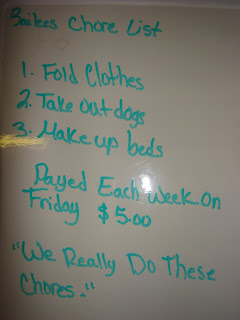 Bailees Chore List
1. Fold Clothes
2. Take out dogs
3. Make up beds
Payed Each Week On
Friday $5.00
"We Really Do These
Chores."